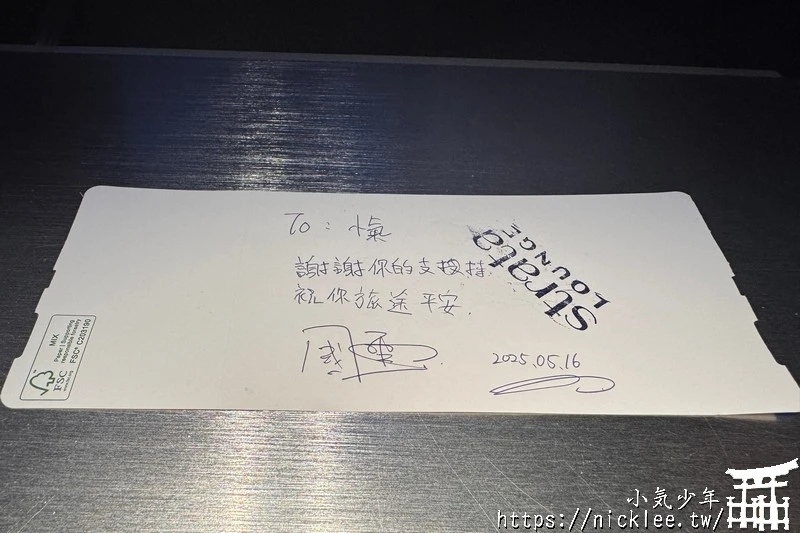 To：小氣
謝謝你的支援持
祝你旅途平安.
2025.05.16
strata
LOUNGE
MIX
Paper | Supporting
responsible forestry
FSC® C203190
FSC
小気少年
https://nicklee.tw/